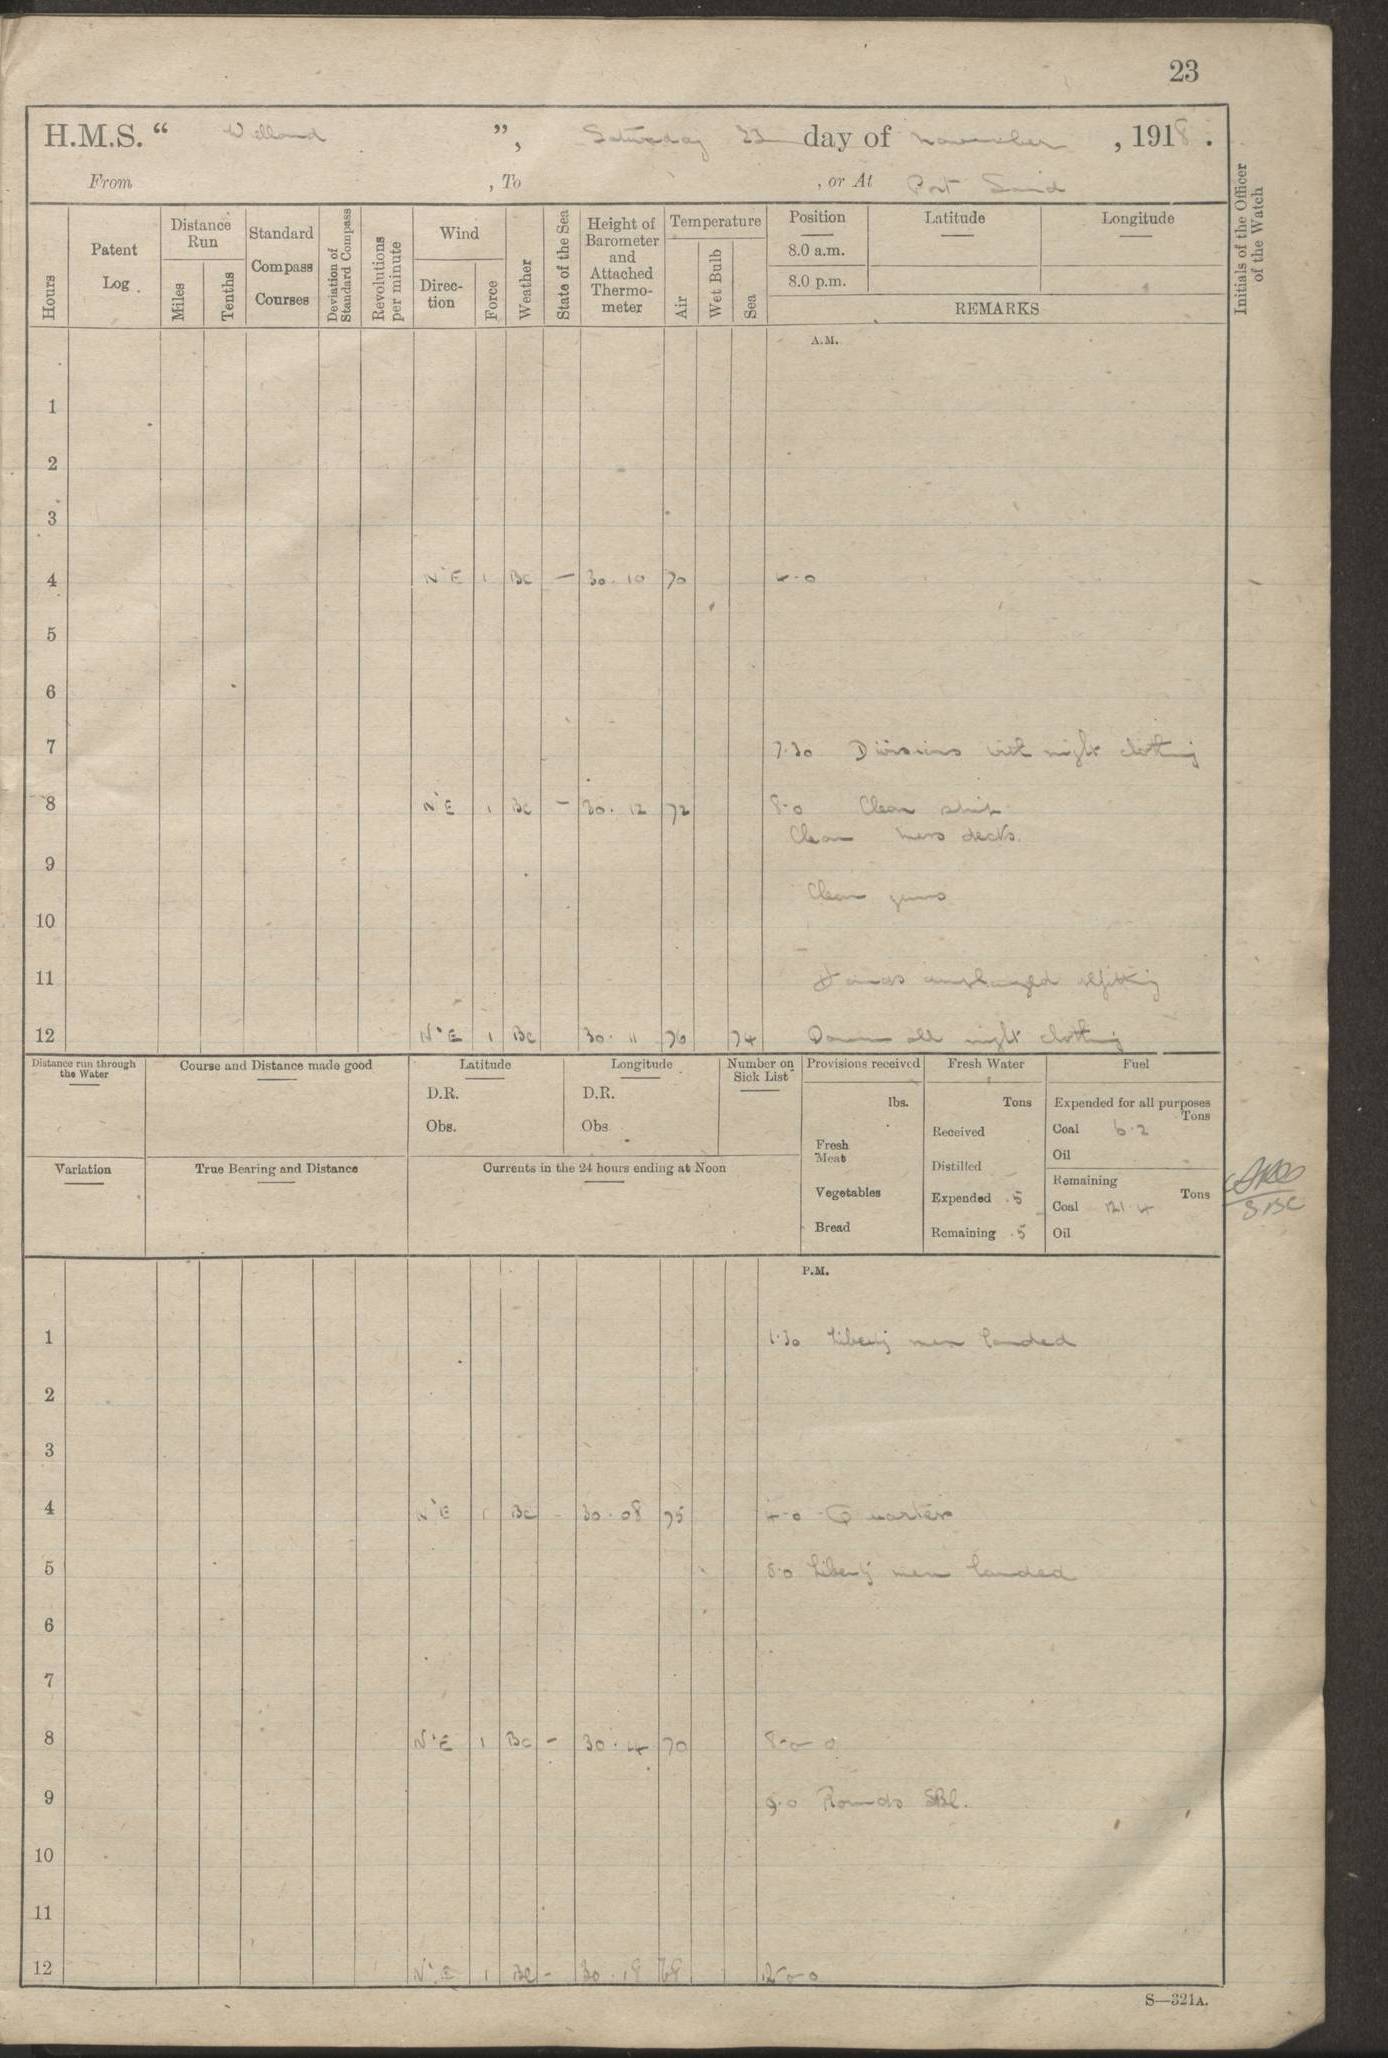 23
H.M.S. “ Welland ”, Saturday 23 day of November , 1918 .
From , To , or At Port Said
Hours
Patent Log
Distance Run
Miles
Tenths
Standard Compass Courses
Deviation of Standard Compass
Revolutions per minute
Wind
Direction
Force
Weather
State of the Sea
Height of Barometer and Attached Thermometer
Temperature
Air
Wet Bulb
Sea
Position
8.0 a.m.
8.0 p.m.
Latitude
Longitude
REMARKS
Initials of the Officer of the Watch
A.M.
1
2
3
4 N'E 1 BC – 30.10 70 4-0
5
6
7
7.30 Divisions with night clothing
8 N'E 1 BC – 30.12 72 8-0 Clean ship
Clean mess decks.
9
Clean guns
10
11
Hands employed refitting
12 N'E 1 BC 30.11 76 74 Down all night clothing
Distance run through the Water
Course and Distance made good
Latitude
D.R.
Obs.
Longitude
D.R.
Obs
Number on Sick List
Provisions received
lbs.
Fresh Meat
Vegetables
Bread
Fresh Water
Tons
Received
Distilled
Expended .5
Remaining .5
Fuel
Expended for all purposes
Tons
Coal 6.2
Oil
Remaining
Tons
Coal 121.4
Oil
Variation
True Bearing and Distance
Currents in the 24 hours ending at Noon
P.M.
1 1.30 Liberty men landed
2
3
4 N'E 1 BC - 30.08 75 4-0 Quarters
5 5.0 Liberty men landed
6
7
8 N'E 1 BC – 30.14 70 8-0-0
9 9.0 Rounds
10
11
12 N'E 1 BC – 30.18 68 12-0-0
S—321A.